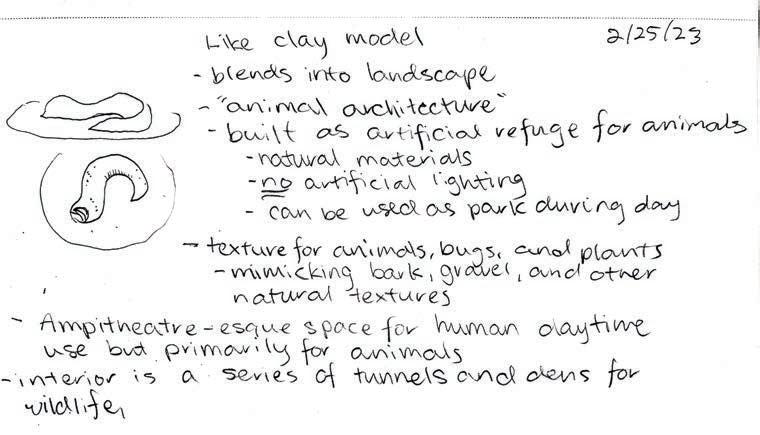 Like clay model
2/25/23
- blends into landscape
- "animal architecture"
- built as artificial refuge for animals
- natural materials
- no artificial lighting
- can be used as park during day
- texture for animals, bugs, and plants
- mimicking bark, gravel, and other
natural textures
- Ampitheatre-esque space for human daytime
use but primarily for animals
- interior is a series of tunnels and dens for
wildlife,